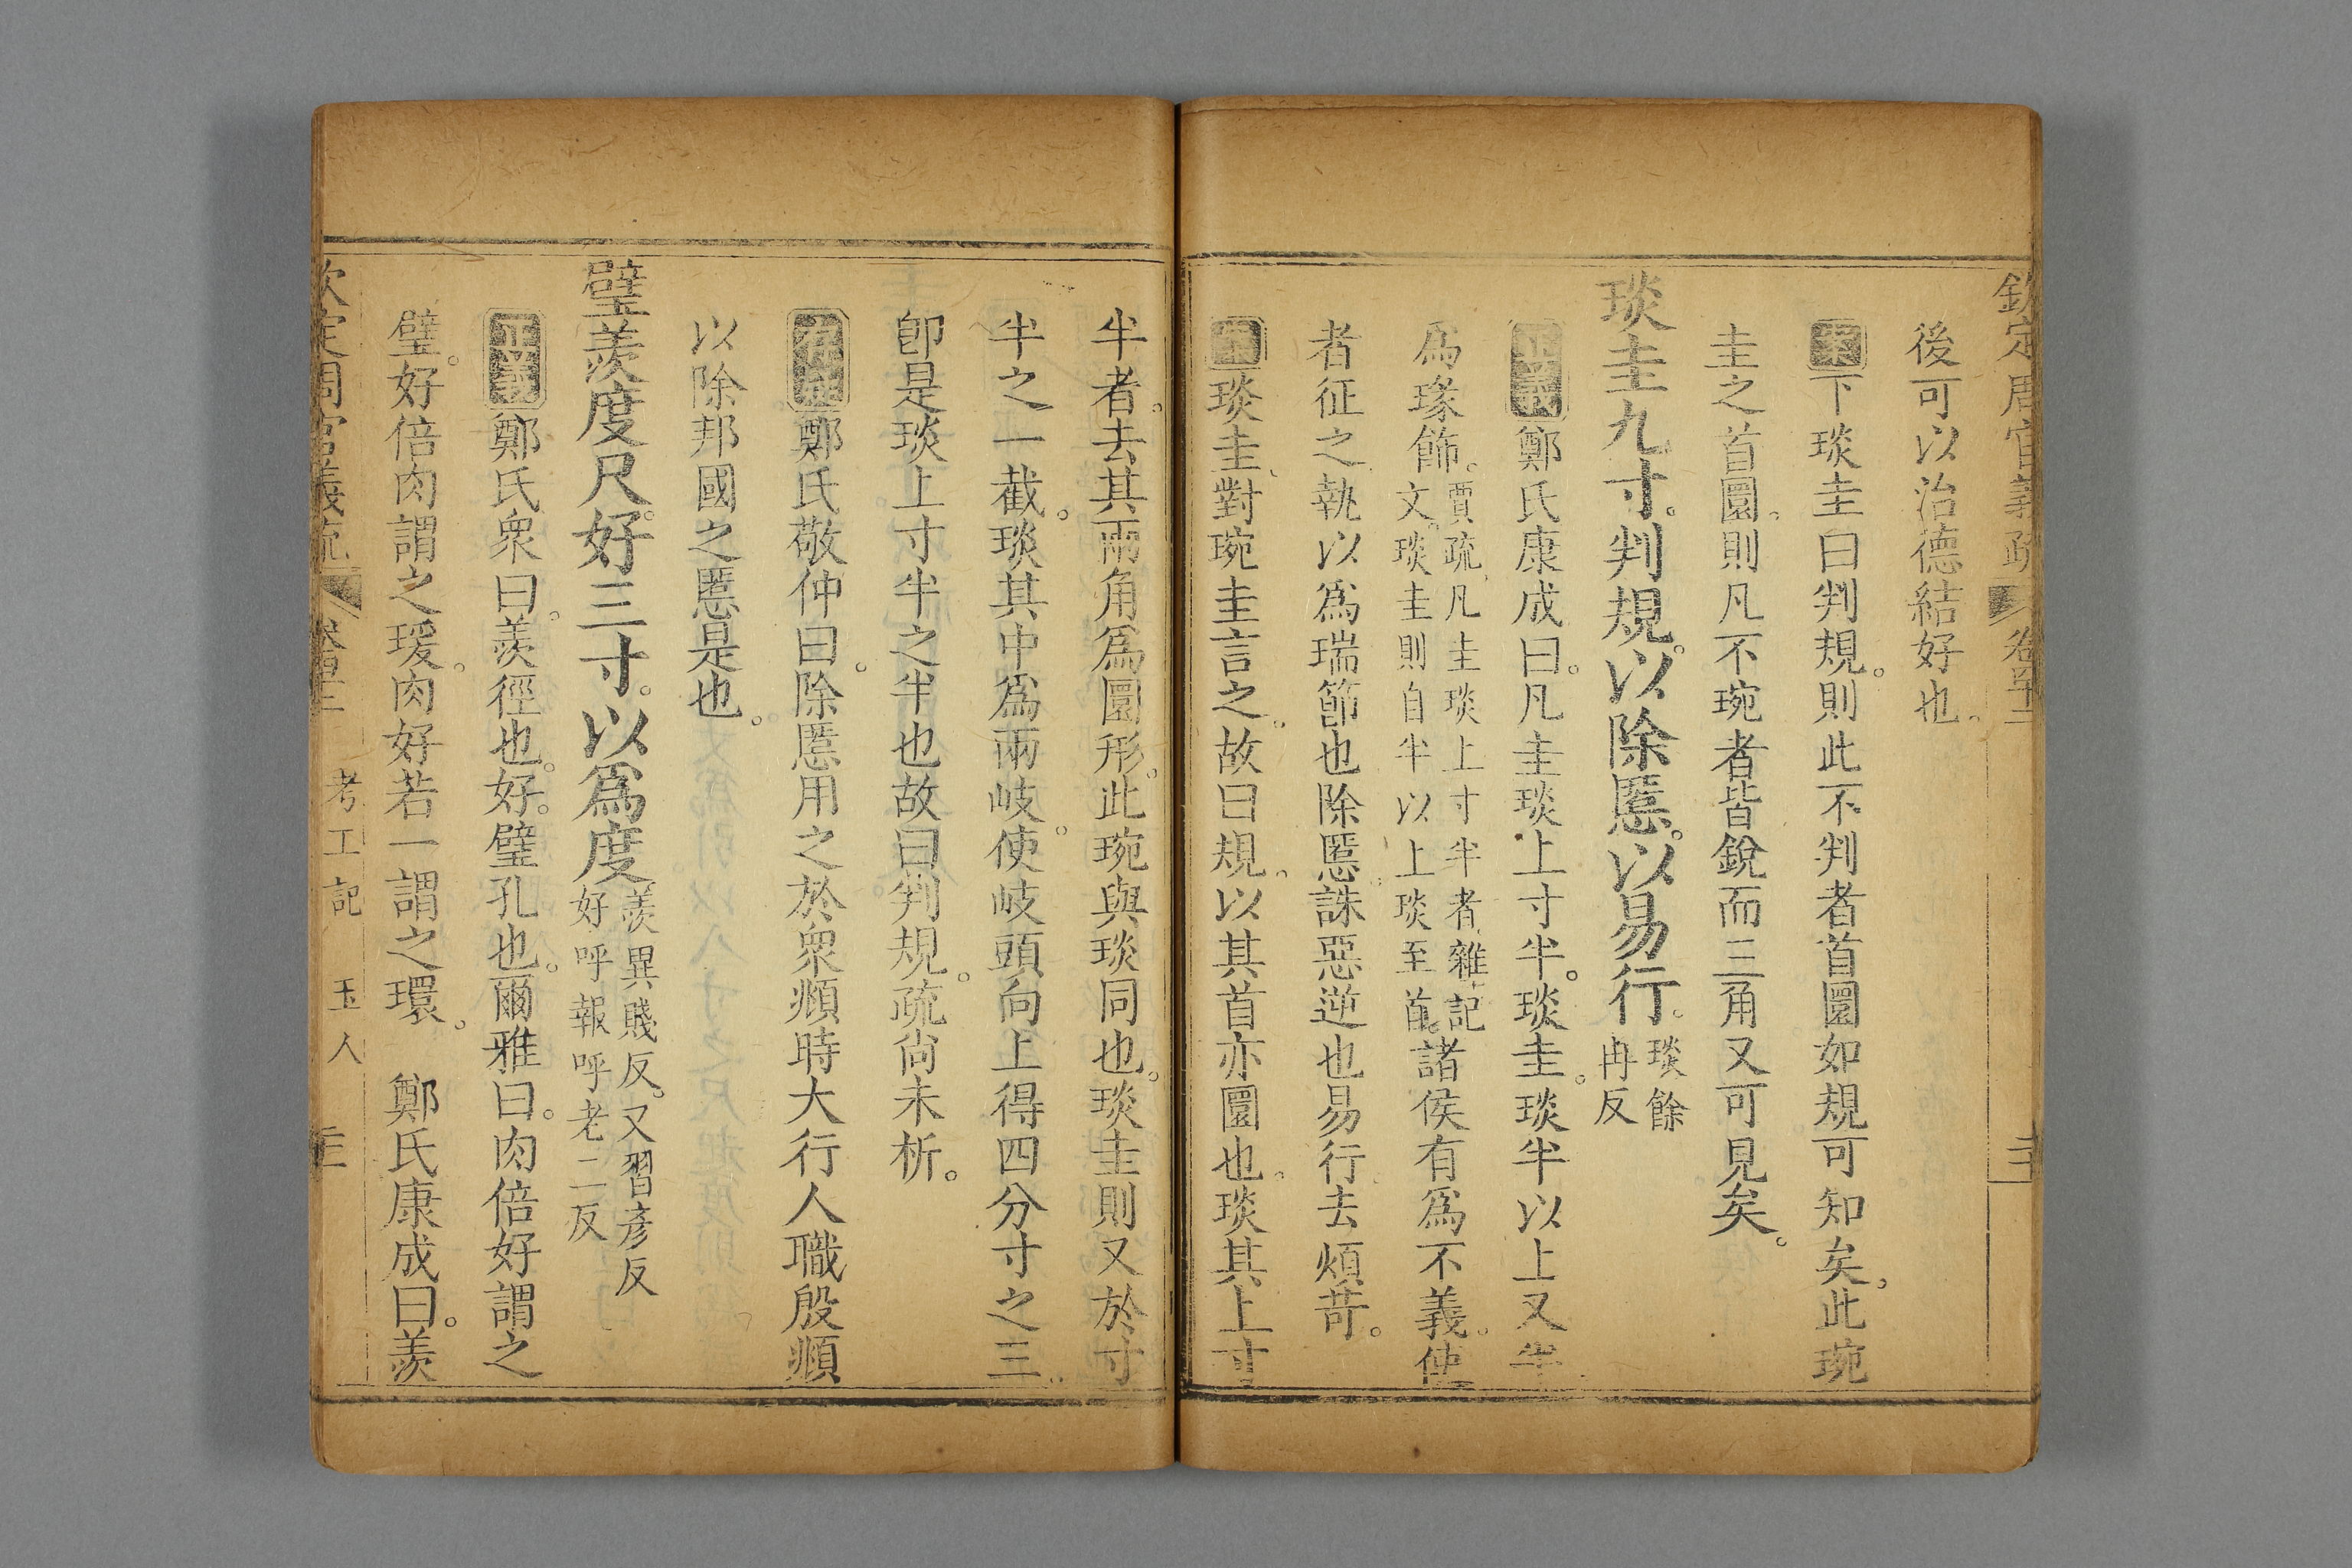 欽定周官義疏
後可以治德結好也。
案下琰圭曰判規。則此不判者首圜如規可知矣。此琬
圭之首圜。則凡不琬者皆銳而三角又可見矣。
琰圭九寸。判規。以除慝。以易行。琰餘
冉反
正義鄭氏康成曰。凡圭琰上寸半。琰圭。琰半以上又半
爲瑑飾。賈疏。凡圭琰上寸半者。雜記
文。琰圭則自半以上琰至首。諸侯有爲不義。使
者征之執以爲瑞節也除慝。誅惡逆也易行。去煩苛。
案琰圭對琬圭言之。故曰規。以其首亦圜也。琰其上寸
半者。去其兩角爲圜形。此琬與琰同也。琰圭則又於寸
半之一截。琰其中爲兩岐。使岐頭向上得四分寸之三
卽是琰上寸半之半也故曰判規。疏尙未析。
存疑鄭氏敬仲曰。除慝用之於衆頫時大行人職殷頫
以除邦國之慝是也。
璧羨度尺。好三寸。以爲度羨異賤反。又習彥反
好呼報呼老二反
正義鄭氏衆曰。羨徑也。好。璧孔也。爾雅曰。肉倍好謂之
璧。好倍肉謂之瑗。肉好若一謂之環。 鄭氏康成曰。羨
欽定周官義疏 考工記 玉人